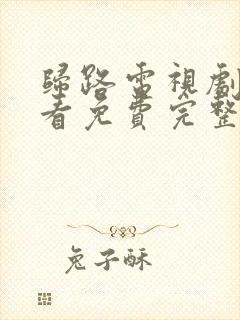 歸路電視劇
看免費完整
兔子酥